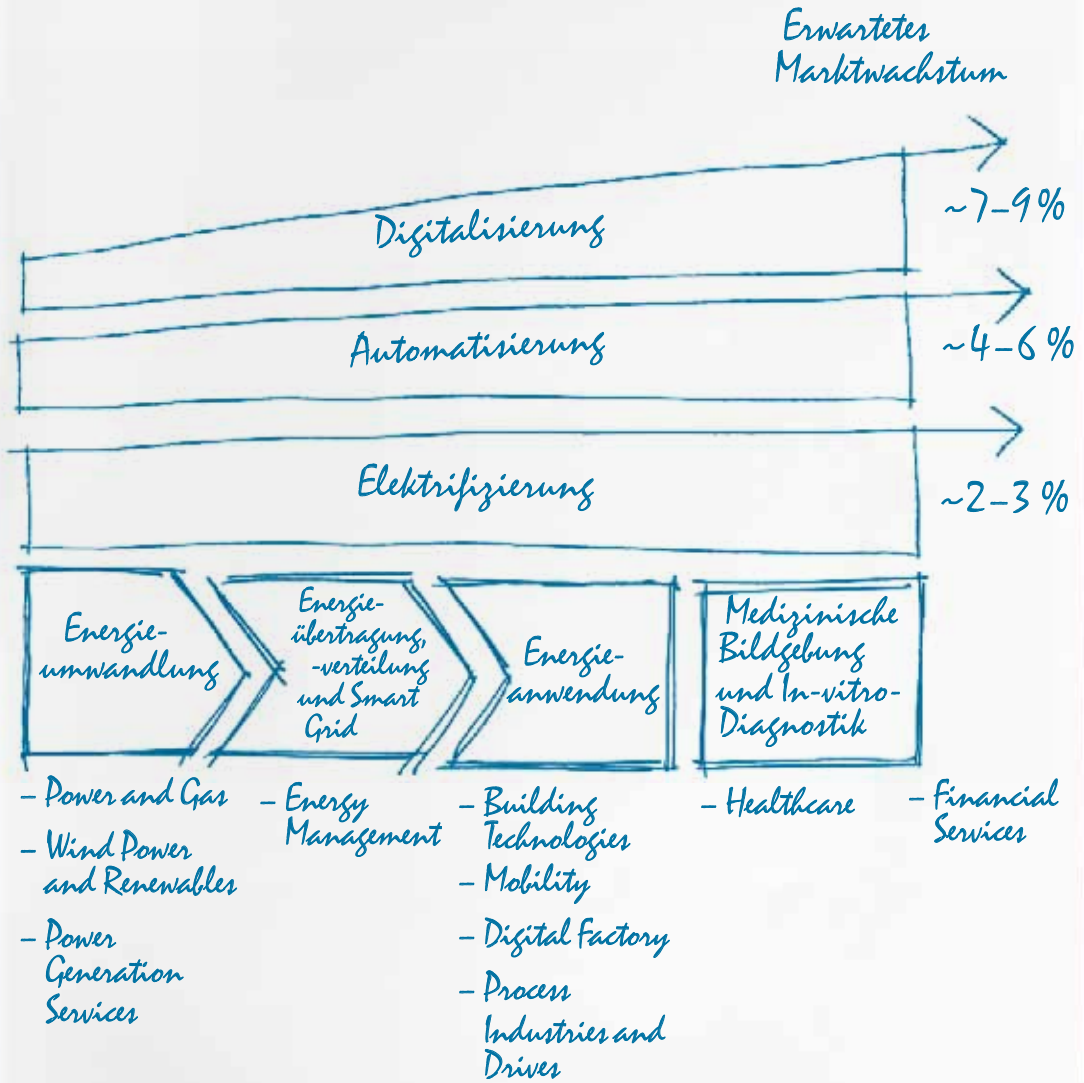 Erwartetes
Marktwachstum
Digitalisierung
~7–9%
Automatisierung
~4–6 %
Elektrifizierung
~2–3 %
Energie-
umwandlung
Energie-
übertragung,
-verteilung
und Smart
Grid
Energie-
anwendung
Medizinische
Bildgebung
und In-vitro-
Diagnostik
– Power and Gas
– Wind Power
and Renewables
– Power
Generation
Services
– Energy
Management
– Building
Technologies
– Mobility
– Digital Factory
– Process
Industries and
Drives
– Healthcare
– Financial
Services